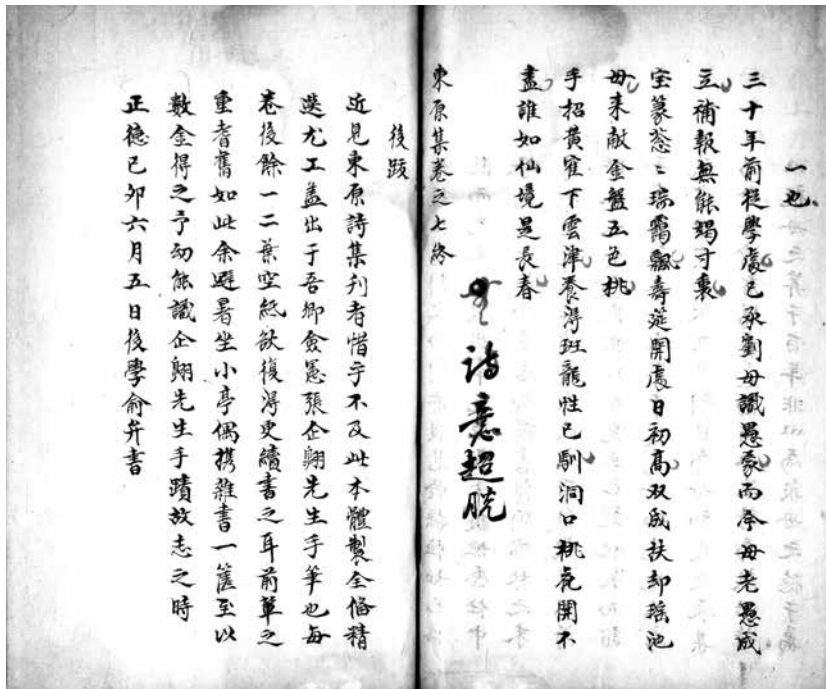 一也
三十年前從學處已承劉母識愚蒙而今母老愚成
立補報無能竭寸衷
宝篆葱〻瑞靄飄壽筵開處日初高双成扶却瑶池
母来献金盤五色桃
手招黄寉下雲津養得班龍性已馴洞口桃花開不
盡誰如仙境是長春
詩意超脱
東原集卷之七終
後跋
近見東原詩集刊者惜乎不及此本體製全俻精
選尤工盖出于吾鄉僉憲張企翱先生手筆也每
卷後餘一二葉空紙欲復得更續書之耳前軰之
重耆舊如此余避暑坐小亭偶携雜書一篋至以
數金得之予幼能識企翱先生手蹟故志之時
正德己卯六月五日後學俞弁書